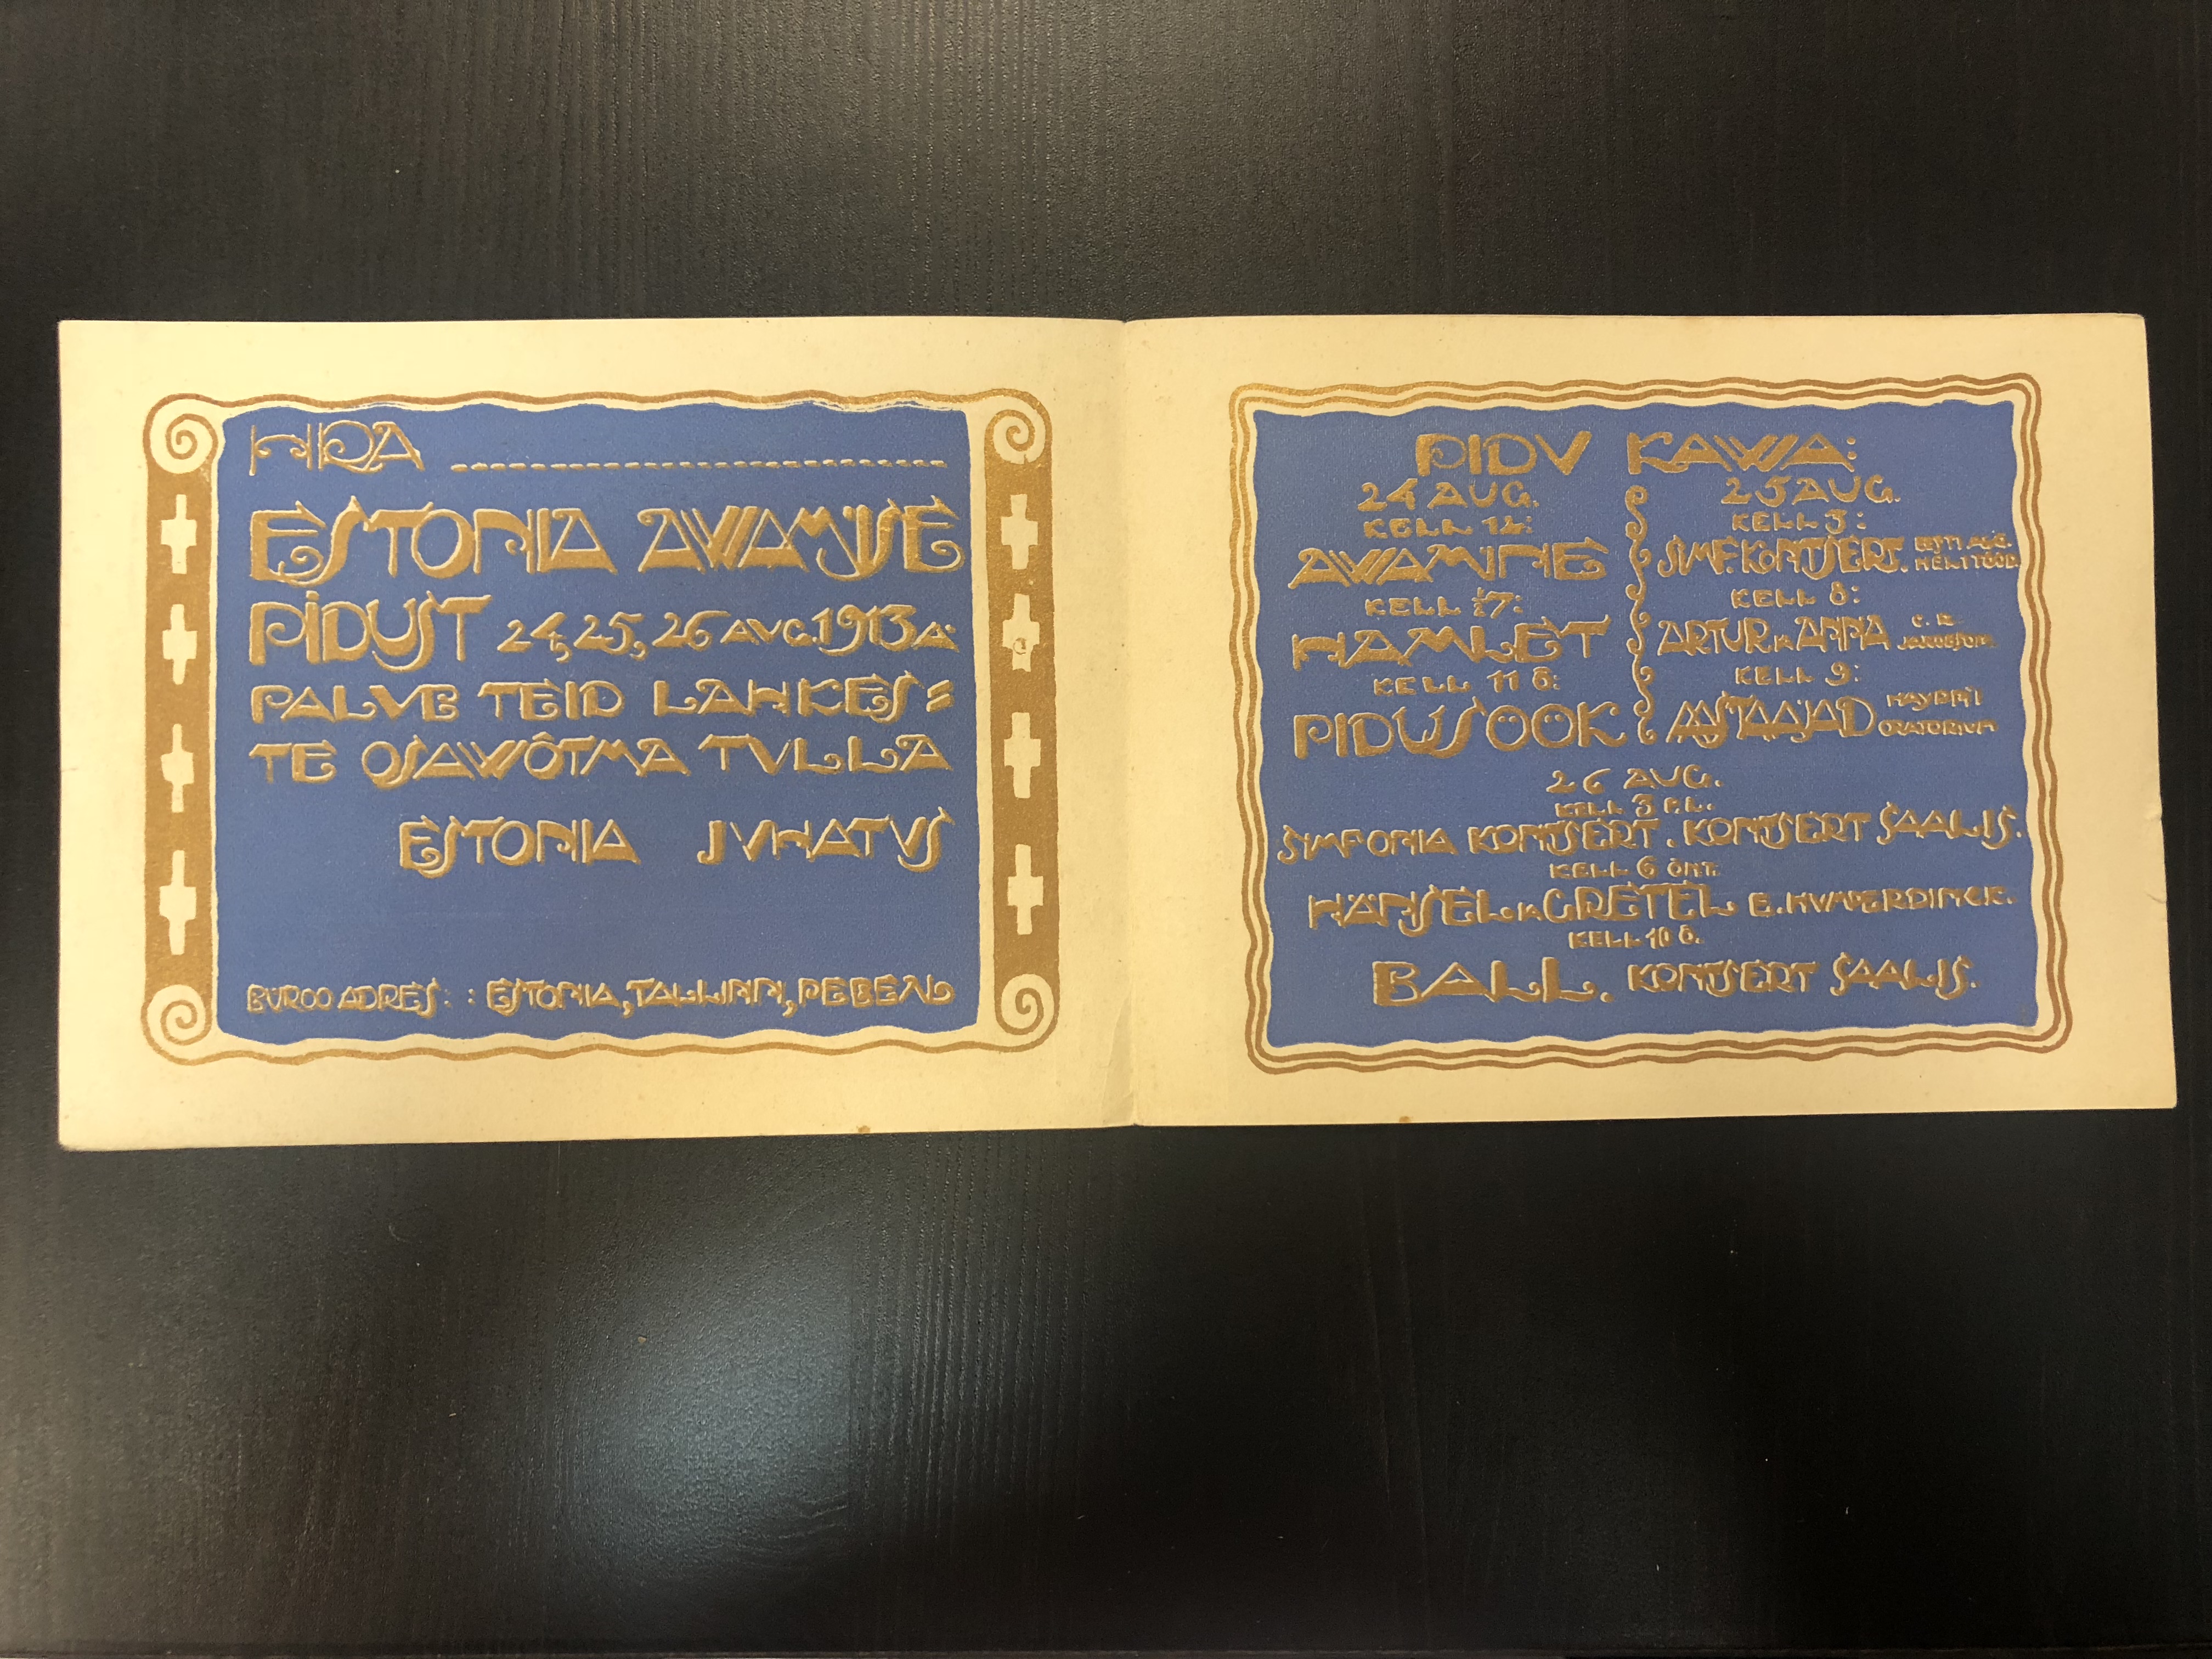 HRA
ESTONIA AWAMISE
PIDUST 24, 25, 26 AUG. 1913 A:
PALVE TEID LAHKES=
TE OSAWÕTMA TVLLA
ESTONIA JVHATVS
BÜROO ADRES: : ESTONIA, TALLINN, РЕВЕЛЬ
PIDV KAWA:
24 AUG.
KELL 12:
AWAMINE
KELL ½7:
HAMLET
KELL 11 Õ:
PIDUSÖÖK
25 AUG.
KELL 3:
SIMF. KONTSERT. EESTI AUG.
HELITÖÖD.
KELL 8:
ARTUR JA ANNA C. R.
JAKOBSON.
KELL 9:
AASTAAJAD HAYDN'I
ORATORIUM
26 AUG.
KELL 3 P.L.
SIMFONIA KONTSERT. KONTSERT SAALIS.
KELL 6 ÕHT.
HÄNSEL JA GRETEL E. HVMPERDINCK.
KELL 10 Õ.
BALL. KONTSERT SAALIS.